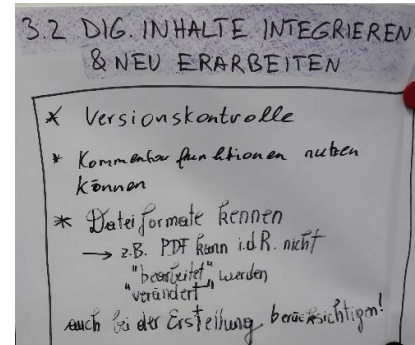 3.2 DIG. INHALTE INTEGRIEREN
& NEU ERARBEITEN
* Versionskontrolle
* Kommentarfunktionen nutzen
können
* Dateiformate kennen
→ z.B. PDF kann i.d.R. nicht
"bearbeitet" werden
"verändert"
auch bei der Erstellung berücksichtigen!